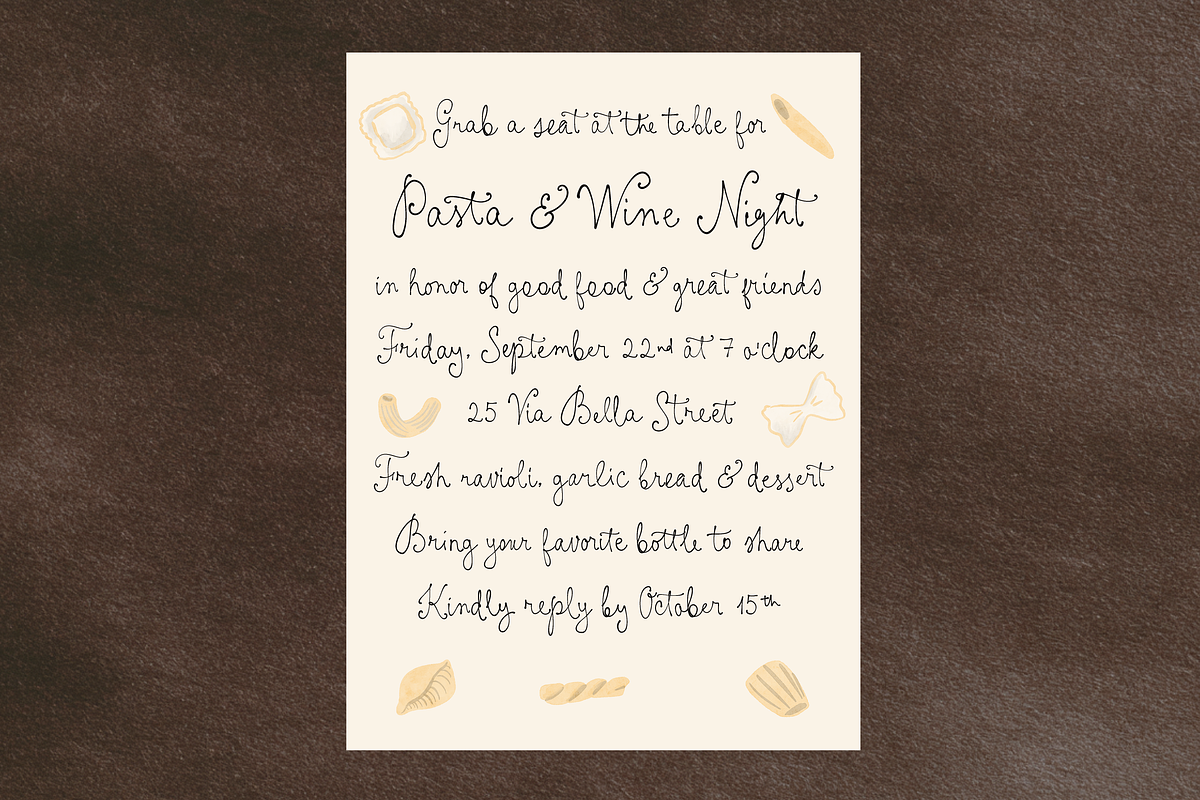 Grab a seat at the table for
Pasta & Wine Night
in honor of good food & great friends
Friday, September 22nd at 7 o'clock
25 Via Bella Street
Fresh ravioli, garlic bread & dessert
Bring your favorite bottle to share
Kindly reply by October 15th